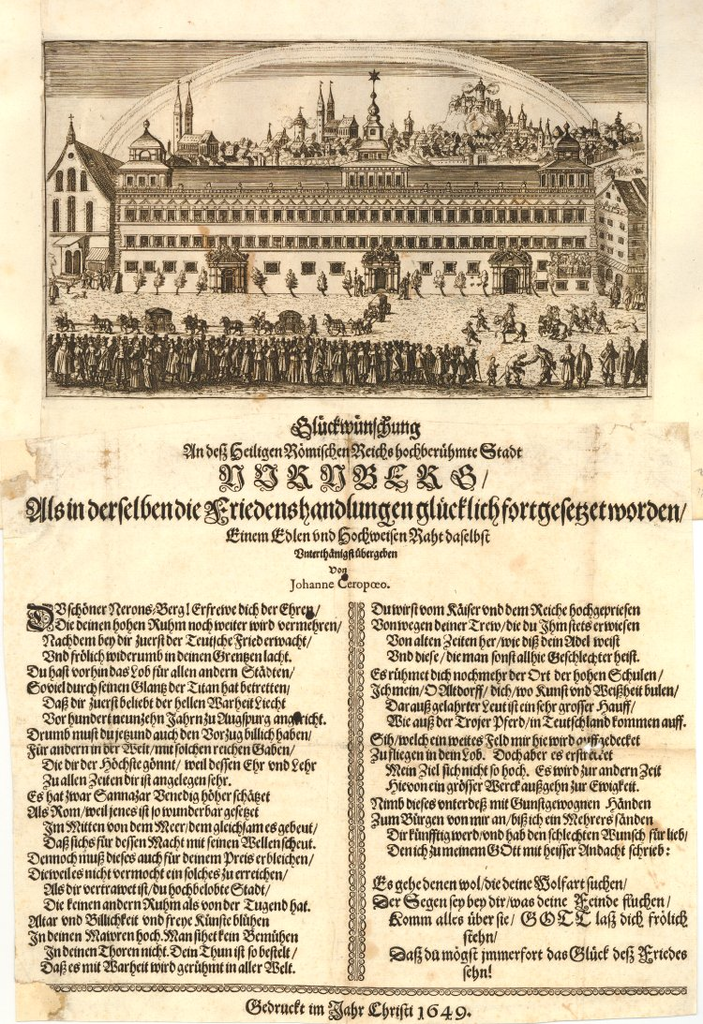 Glückwünschung
An deß Heiligen Römischen Reichs hochberühmte Stadt
NURNBERG/
Als in derselben die Friedenshandlungen glücklich fortgesetzet worden/
Einem Edlen vnd Hochweisen Raht daselbst
Vnterthänigst übergeben
Von
Johanne Ceropœo.
DV schöner Nerons-Berg! Erfrewe dich der Ehren/
Die deinen hohen Ruhm noch weiter wird vermehren/
Nachdem bey dir zuerst der Teutsche Fried erwacht/
Vnd frölich widerumb in deinen Grentzen lacht.
Du hast vorhin das Lob für allen andern Städten/
So viel durch seinen Glantz der Titan hat betretten/
Daß dir zuerst beliebt der hellen Warheit Liecht
Vor hundert neunzehn Jahrn zu Augspurg angericht.
Drumb must du jetzund auch den Vorzug billich haben/
Für andern in der Welt/ mit solchen reichen Gaben/
Die dir der Höchste gönnt/ weil dessen Ehr vnd Lehr
Zu allen Zeiten dir ist angelegen sehr.
Es hat zwar Sannazar Venedig höher schätzet
Als Rom/ weil jenes ist so wunderbar gesetzt
Im Mitten von dem Meer/ dem gleichsam es gebeut/
Daß sichs für dessen Macht mit seinen Wellen scheut.
Dennoch muß dieses auch für deinem Preis erbleichen/
Dieweil es nicht vermocht ein solches zu erreichen/
Als dir vertrawet ist/ du hochbelobte Stadt/
Die keinen andern Ruhm als von der Tugend hat.
Altar vnd Billichkeit vnd freye Künste blühen
In deinen Mawren hoch. Man sihet kein Bemühen
In deinen Thoren nicht. Dein Thun ist so bestelt/
Daß es mit Warheit wird gerühmt in aller Welt.
Du wirst vom Käiser vnd dem Reiche hochgepriesen
Von wegen deiner Trew/ die du Ihm stets erwiesen
Von alten Zeiten her/ wie diß dein Adel weist
Vnd diese/ die man sonst allhie Geschlechter heist.
Es rühmet dich noch mehr der Ort der hohen Schulen/
Ich mein/ O Altdorff/ dich/ wo Kunst vnd Weißheit bulen/
Daraus gelahrter Leut ist ein sehr grosser Hauff/
Wie auß der Trojer Pferd/ in Teutschland kommen auff.
Sih/ welch ein weites Feld mir hie wird auffgedecket
Zu fliegen in dein Lob. Doch aber es erstrecket
Mein Ziel sich nicht so hoch. Es wird zur andern Zeit
Hievon ein grösser Werck außgehn zur Ewigkeit.
Nimb dieses unterdeß mit Gunstgewognen Händen
Zum Bürgen von mir an/ biß ich ein Mehrers sänden
Dir künfftig werd/ vnd hab den schlechten Wunsch für lieb/
Den ich zu meinem GOtt mit heisser Andacht schrieb:
Es gehe denen wol/ die deine Wolfart suchen/
Der Segen sey bey dir/ was deine Feinde fluchen/
Komm alles über sie/ GOTT laß dich frölich
stehn/
Daß du mögst jmmerfort das Glück deß Friedes
sehn!
Gedruckt im Jahr Christi 1649.